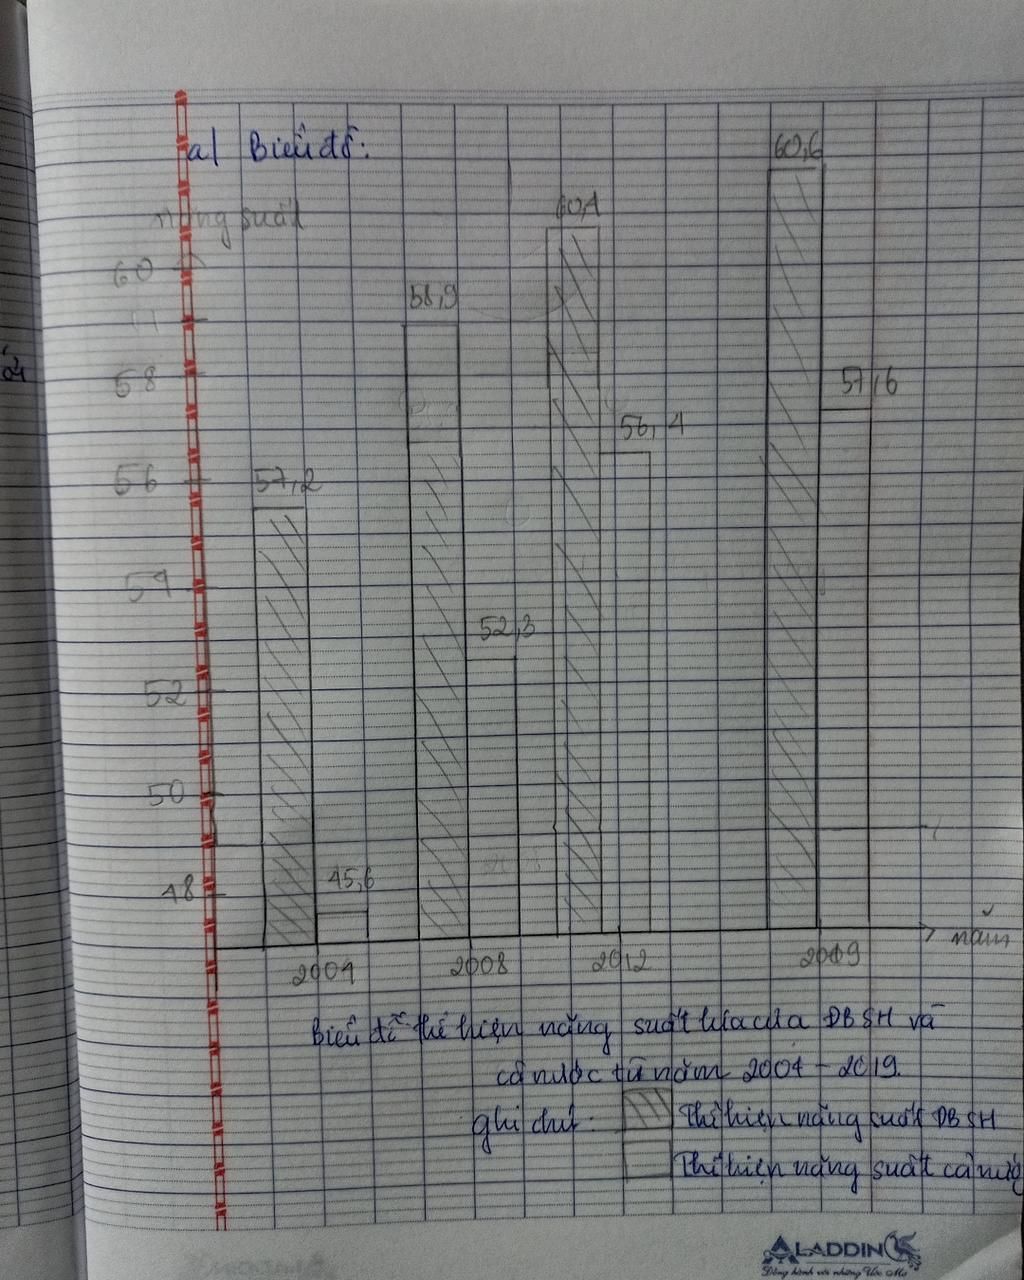 a) Biểu đồ:
năng suất
60,6
60,1
60
58,9
58
57,6
56,4
56
57,2
54
52,3
52
50
45,6
48
năm
2004 2008 2012 2009
Biểu đồ thể hiện năng suất lúa của ĐBSH và
cả nước từ năm 2004 - 2019.
ghi chú: Thể hiện năng suất ĐBSH
Thể hiện năng suất cả nước
ALADDIN
Đồng hành với những Ước Mơ